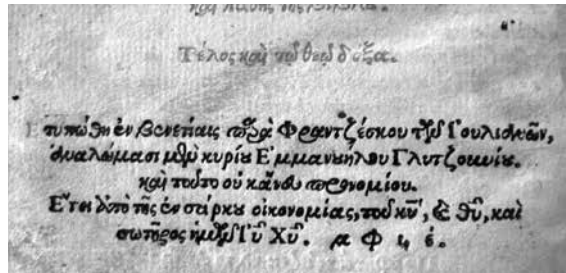 Τέλος καὶ τῷ θεῷ δόξα.
Ἐτυπώθη ἐν Βενετίαις παρὰ Φραντζέσκου τῶν Ἰουλιανῶν,
ἀναλώμασι μὲν κυρίου Ἐμμανουήλου Γλυτζουνίου.
καὶ τοῦτο οὐκ ἄνευ προνομίου.
Ἔτει ἀπὸ τῆς ἐν σάρκῳ οἰκονομίας, τοῦ κῦ, & θῦ, καὶ
σωτῆρος ἡμῶν Ἰῦ Χῦ. α Φ ϟ έ.